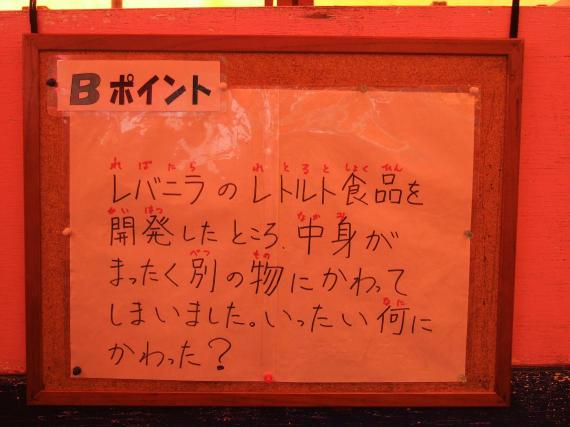 Bポイント
ればにら れとると しょくひん
レバニラのレトルト食品を
かいはつ なかみ
開発したところ、中身が
べつ もの
まったく別の物にかわって
なに
しまいました。いったい何に
かわった?